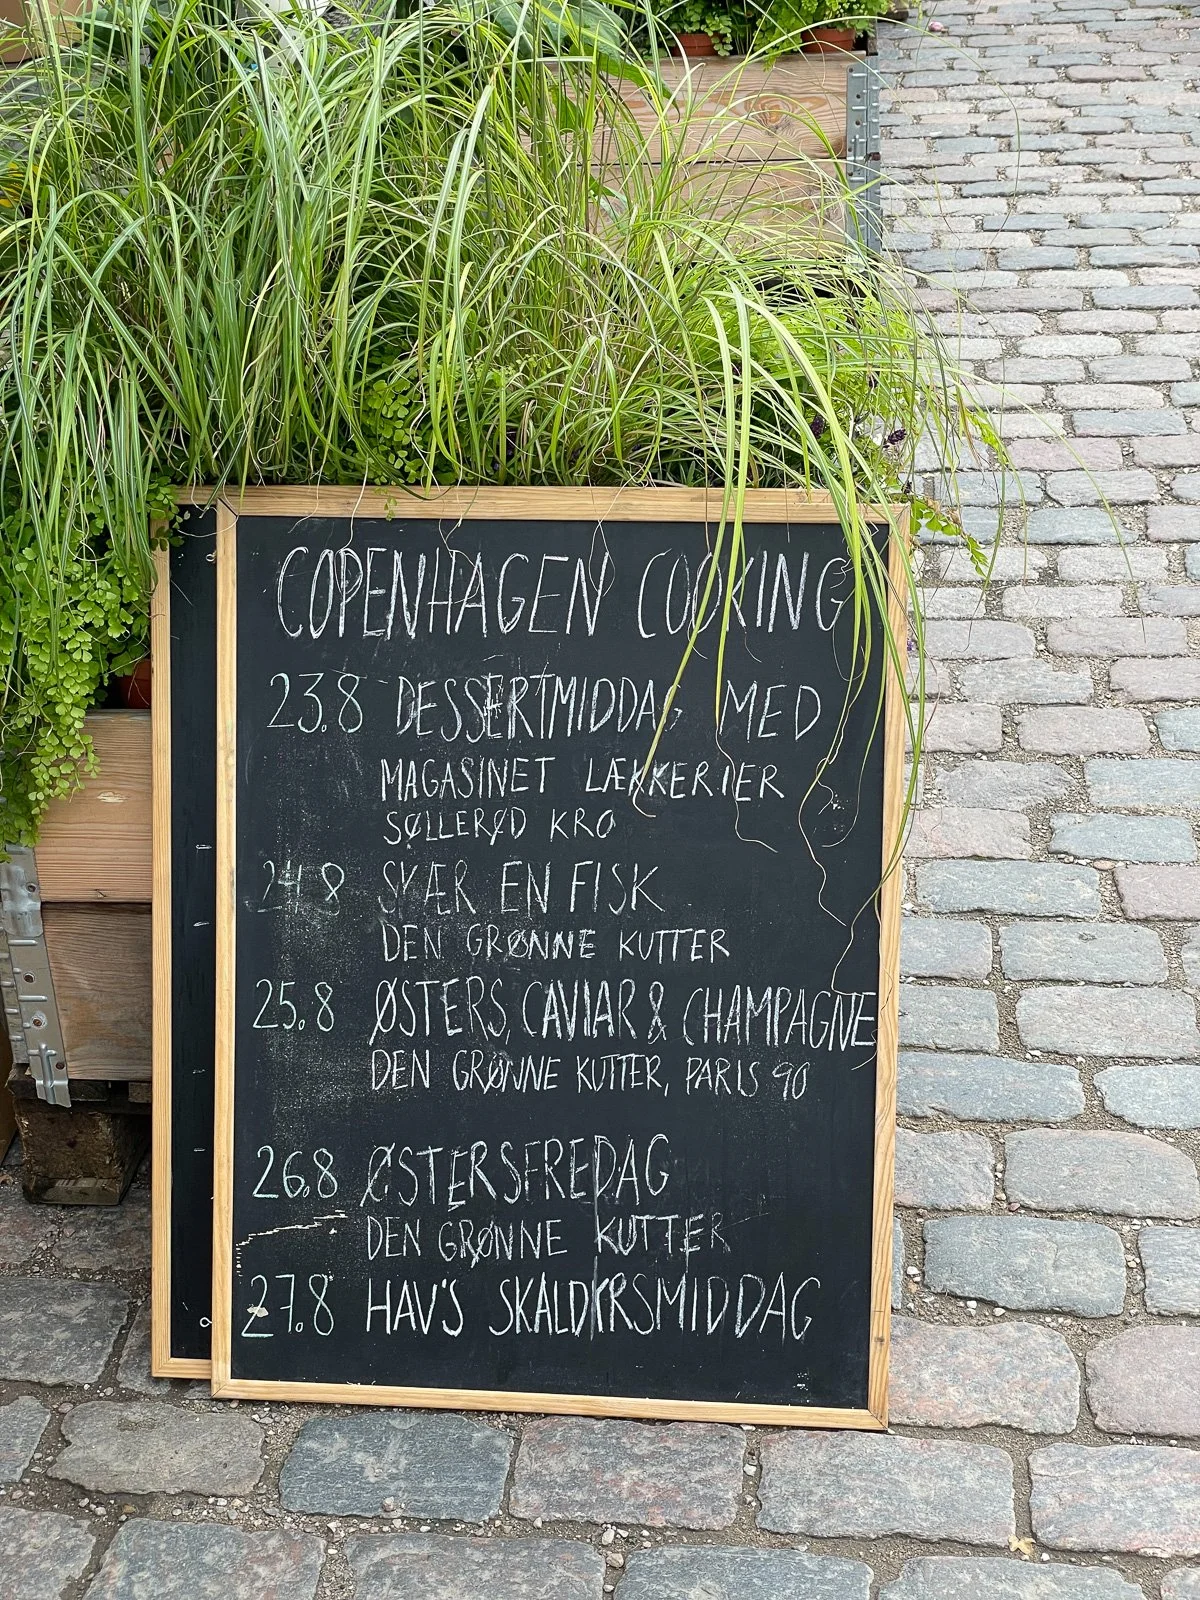 COPENHAGEN COOKING
23.8 DESSERTMIDDAG MED
MAGASINET LÆKKERIER
SØLLERØD KRO
24.8 SKÆR EN FISK
DEN GRØNNE KUTTER
25.8 ØSTERS, CAVIAR & CHAMPAGNE
DEN GRØNNE KUTTER, PARIS 90
26.8 ØSTERSFREDAG
DEN GRØNNE KUTTER
27.8 HAV'S SKALDYRSMIDDAG